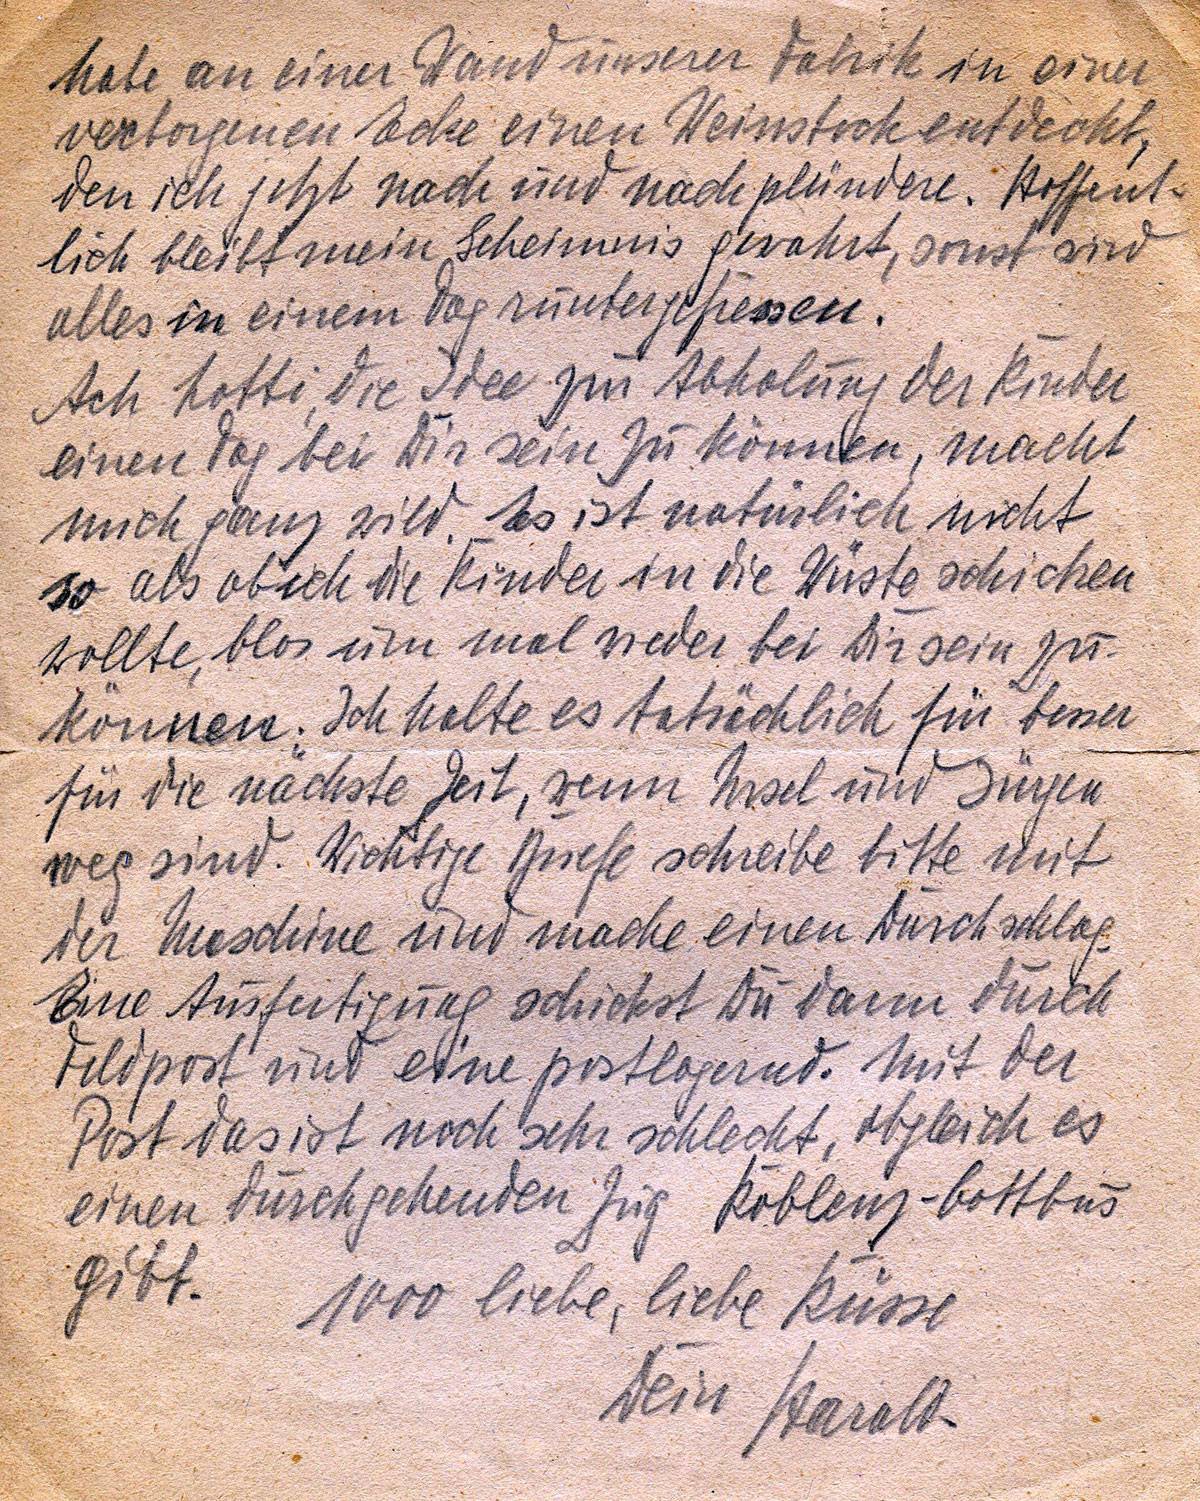 habe an einer Wand unserer Fabrik in einer
verborgenen Ecke einen Weinstock entdeckt,
den ich jetzt nach und nach plündere. Hoffent-
lich bleibt mein Geheimnis gewahrt, sonst wird
alles in einem Tag runtergefressen.
Ach Lotti, die Idee zur Abholung der Kinder
einen Tag bei Dir sein zu können, macht
mich ganz wild. Es ist natürlich nicht
so als ob ich die Kinder in die Wüste schicken
wollte, blos um mal wieder bei Dir sein zu-
können. Ich halte es tatsächlich für besser
für die nächste Zeit, wenn Ursel und Jürgen
weg sind. Wichtige Briefe schreibe bitte mit
der Maschine und mache einen Durchschlag.
Eine Ausfertigung schickst Du dann durch
Feldpost und eine postlagernd. Mit der
Post das ist noch sehr schlecht, obgleich es
einen durchgehenden Zug Koblenz-Cottbus
gibt. 1000 liebe, liebe Küsse
Dein Harald.